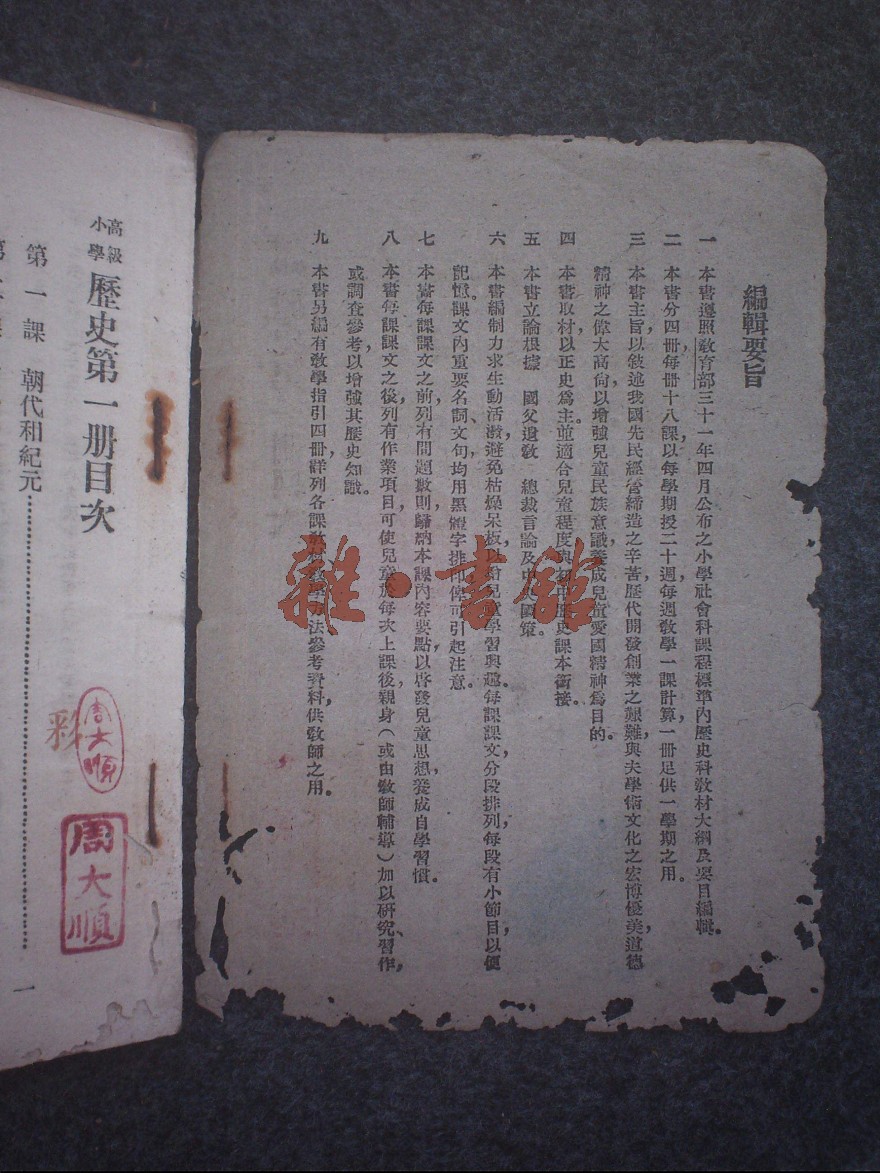 編輯要旨
一 本書遵照教育部三十一年四月公布之小學社會科課程標準內歷史科教材大綱及要目編輯。
二 本書分四冊每冊十八課，以每學期授二十週，每週教學一課計算，一冊足供一學期之用。
三 本書主旨以敘述我國先民經營締造之辛苦，歷代開發創業之艱難，與夫學術文化之宏博優美，道德
精神之偉大高尚，以增強兒童民族意識，養成兒童愛國精神爲目的。
四 本書取材以正史爲主，並適合兒童程度，與初中歷史課本銜接。
五 本書立論根據 國父遺教 總裁言論及中央國策。
六 本書編制力求生動活潑，避免枯燥呆板，以啓兒童學習興趣。每課課文分段排列，每段有小節目，以便
記憶。課文內重要名詞、文句均用黑體字排印，俾可引起注意。
七 本書每課課文之前，列有問題數則，歸納本課內容要點，以啓發兒童思想，養成自學習慣。
八 本書每課課文之後，列有作業項目，可使兒童於每次上課後，親身（或由教師輔導）加以研究、習作，
或調查參考，以增強其歷史知識。
九 本書另編有教學指引四冊，詳列各課教材教學方法參考資料，供教師之用。
高級
小學
歷史第一册目次
第一課 朝代和紀元……………………一
周大順
周大順
雜·書館